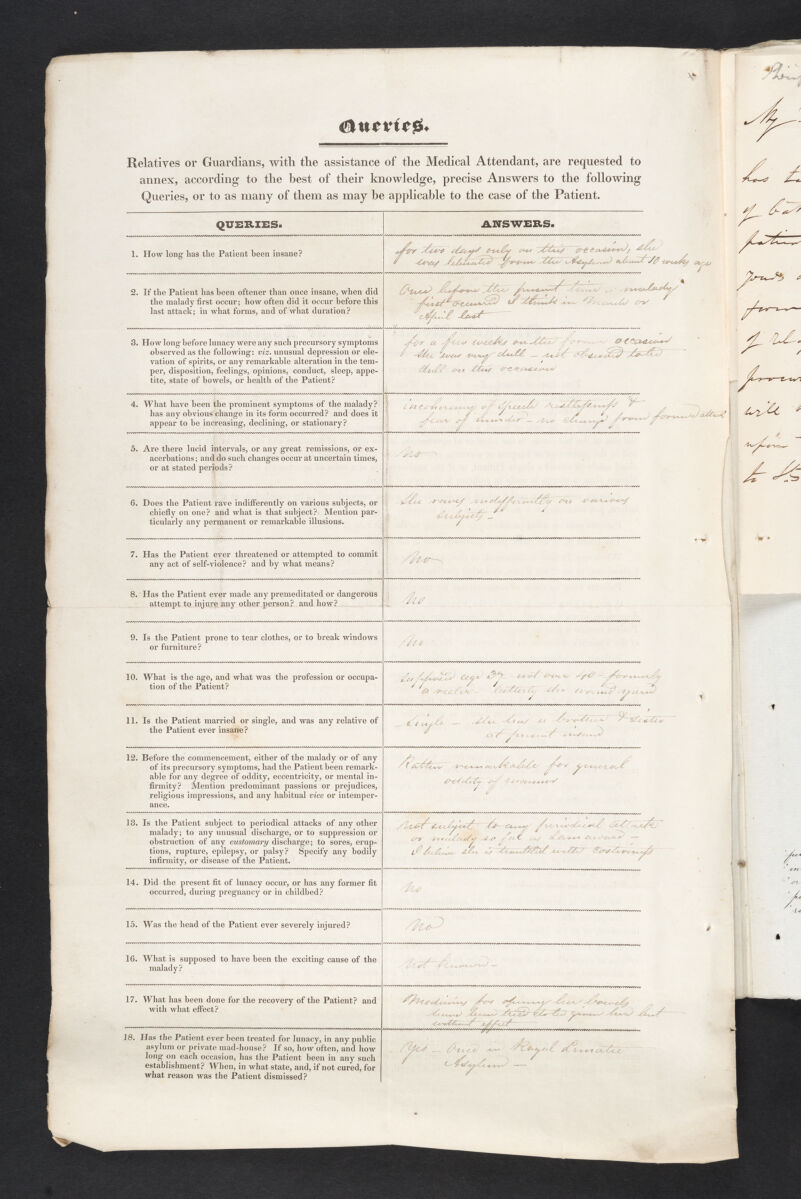 Queries.
Relatives or Guardians, with the assistance of the Medical Attendant, are requested to
annex, according to the best of their knowledge, precise Answers to the following
Queries, or to as many of them as may be applicable to the case of the Patient.
QUERIES.
ANSWERS.
1. How long has the Patient been insane?
for two days only on this occasion, she
was liberated from the Asylum about 10 weeks ago
2. If the Patient has been oftener than once insane, when did
the malady first occur; how often did it occur before this
last attack; in what forms, and of what duration?
Once before the present time malady
first occurred I think in March or
April last
3. How long before lunacy were any such precursory symptoms
observed as the following: viz. unusual depression or ele-
vation of spirits, or any remarkable alteration in the tem-
per, disposition, feelings, opinions, conduct, sleep, appe-
tite, state of bowels, or health of the Patient?
for a few weeks on the former occasion
she was very dull - not observed to be
dull on this occasion
4. What have been the prominent symptoms of the malady?
has any obvious change in its form occurred? and does it
appear to be increasing, declining, or stationary?
incoherency of speech restlessness &
fear of murder - no change from former attack
5. Are there lucid intervals, or any great remissions, or ex-
acerbations; and do such changes occur at uncertain times,
or at stated periods?
No
6. Does the Patient rave indifferently on various subjects, or
chiefly on one? and what is that subject? Mention par-
ticularly any permanent or remarkable illusions.
She raves indifferently on various
subjects -
7. Has the Patient ever threatened or attempted to commit
any act of self-violence? and by what means?
No
8. Has the Patient ever made any premeditated or dangerous
attempt to injure any other person? and how?
No
9. Is the Patient prone to tear clothes, or to break windows
or furniture?
No
10. What is the age, and what was the profession or occupa-
tion of the Patient?
Supposed age 37 not over 40 - formerly
a latterly she wound yarn
11. Is the Patient married or single, and was any relative of
the Patient ever insane?
Single - she has a brother & sister
at present insane
12. Before the commencement, either of the malady or of any
of its precursory symptoms, had the Patient been remark-
able for any degree of oddity, eccentricity, or mental in-
firmity? Mention predominant passions or prejudices,
religious impressions, and any habitual vice or intemper-
ance.
Rather remarkable for general
oddity of manner
13. Is the Patient subject to periodical attacks of any other
malady; to any unusual discharge, or to suppression or
obstruction of any customary discharge; to sores, erup-
tions, rupture, epilepsy, or palsy? Specify any bodily
infirmity, or disease of the Patient.
Not subject to any periodical attacks
or malady so far as I am aware -
I believe she is troubled with costiveness
14. Did the present fit of lunacy occur, or has any former fit
occurred, during pregnancy or in childbed?
No
15. Was the head of the Patient ever severely injured?
No
16. What is supposed to have been the exciting cause of the
malady?
Not known -
17. What has been done for the recovery of the Patient? and
with what effect?
Medicines for opening her bowels
have been tried but
without effect
18. Has the Patient ever been treated for lunacy, in any public
asylum or private mad-house? If so, how often, and how
long on each occasion, has the Patient been in any such
establishment? When, in what state, and, if not cured, for
what reason was the Patient dismissed?
Yes - Once in Royal Lunatic
Asylum -
My
has
of
will
upon
to